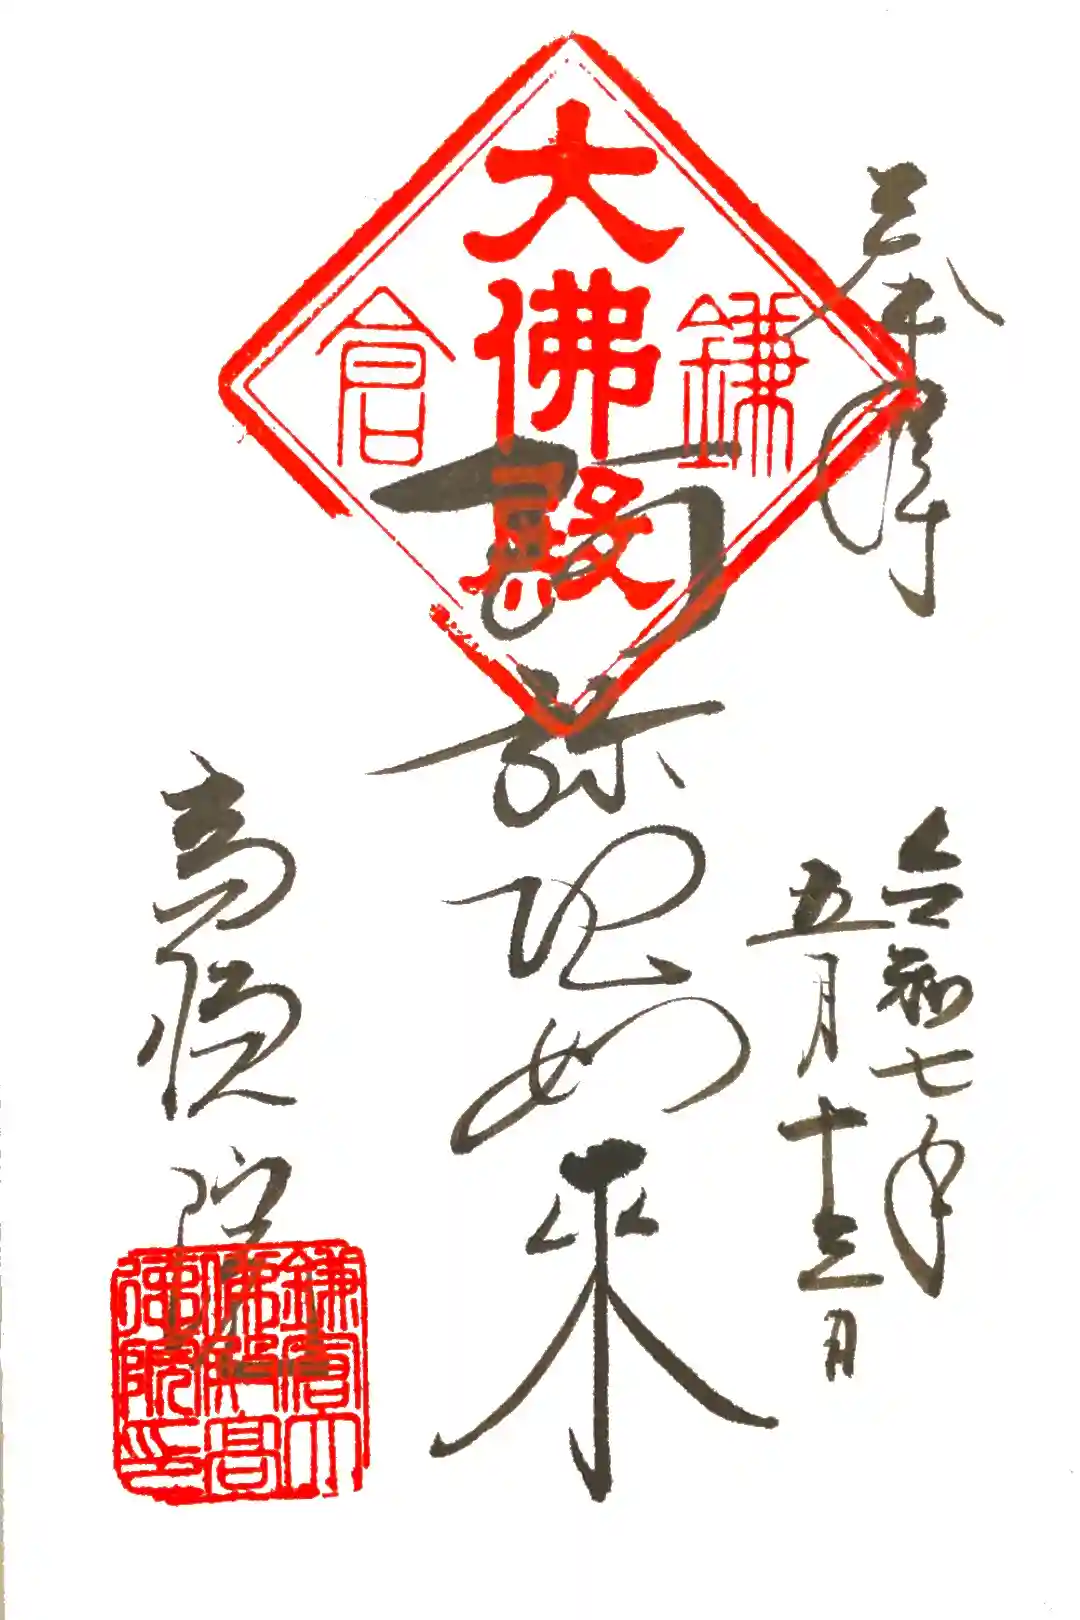 奉拝
令和七年
五月十三日
鎌倉
大佛殿
阿弥陀如来
高徳院
鎌倉大
佛殿高
徳院印